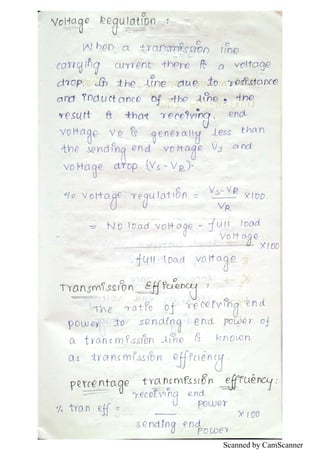 Voltage Regulation :
When a transmission line
carrying current there is a voltage
drop in the line due to resistance
and inductance of the line, the
result is that receiving. end
voltage VR is generally less than
the sending end voltage Vs and
voltage drop (Vs - VR).
% voltage regulation = Vs - VR / VR x 100
= No load voltage - full load
voltage
x 100
full load voltage
Transmission Efficiency :
The ratio of receiving end
power to sending end power of
a transmission line is known
as transmission efficiency.
percentage transmission efficiency :
receiving end
power
% tran eff = x 100
sending end
power
Scanned by CamScanner